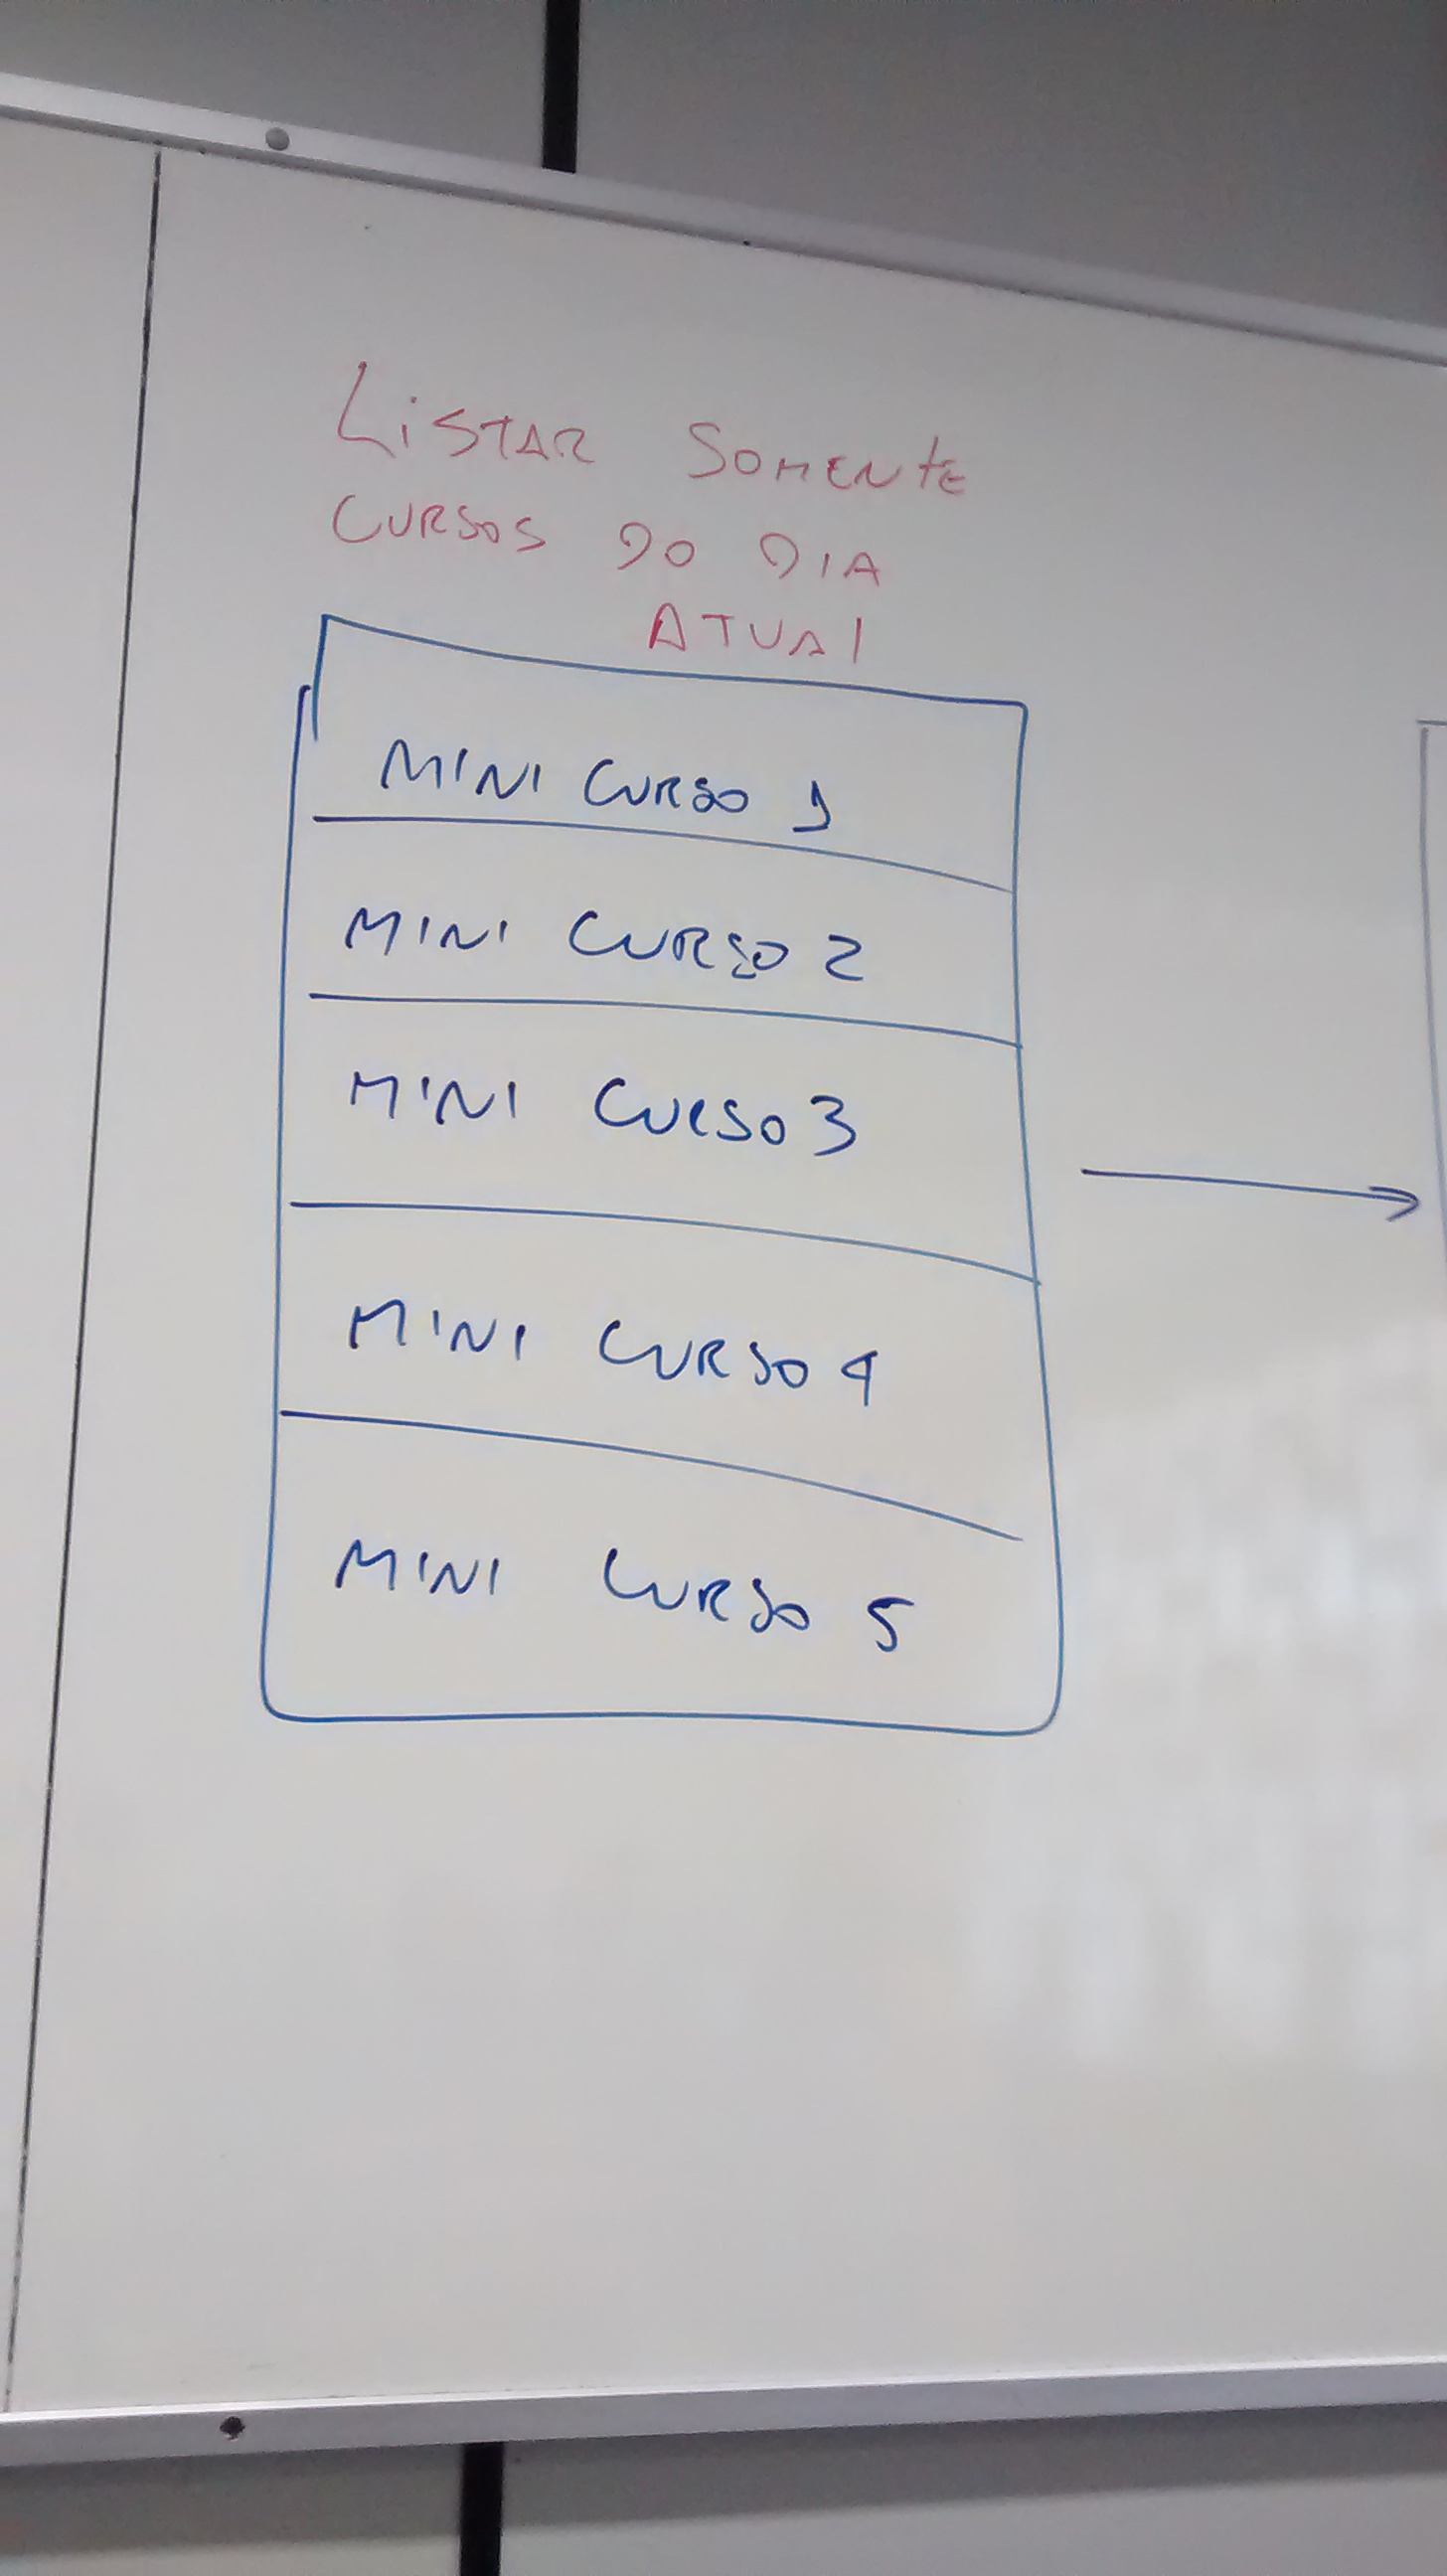 LISTAR SOMENTE
CURSOS DO DIA
ATUAL
MINI CURSO 1
MINI CURSO 2
MINI CURSO 3
MINI CURSO 4
MINI CURSO 5